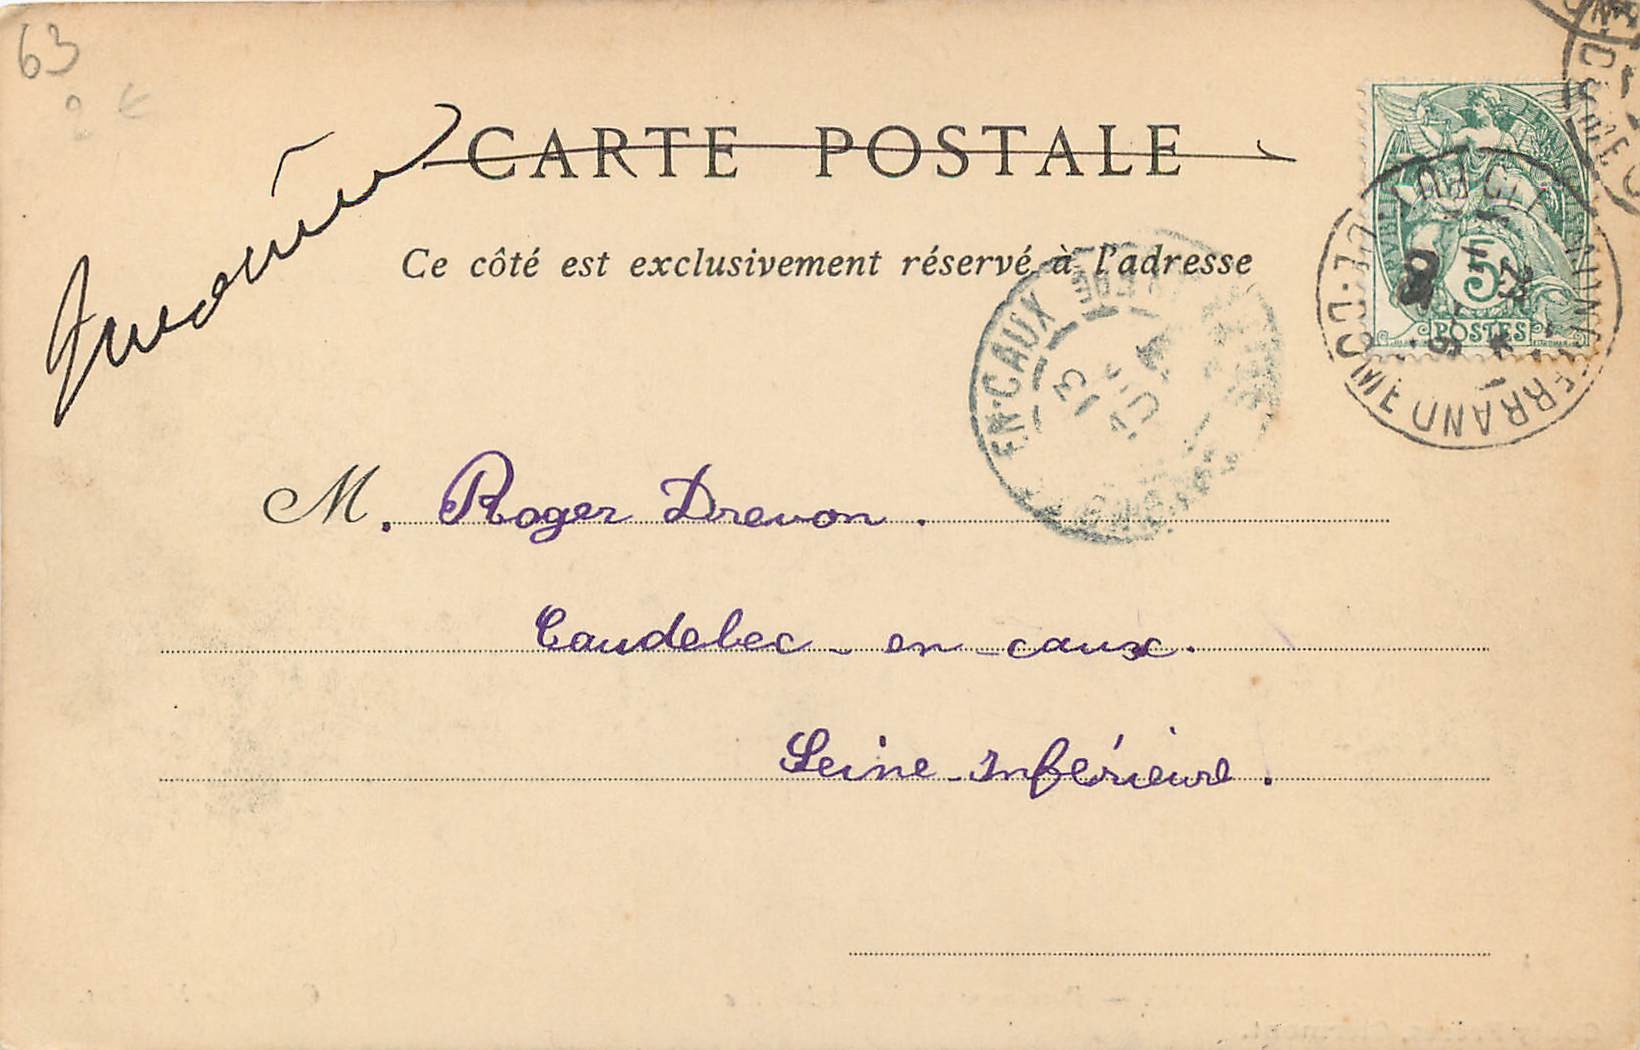 63
2 €
Imprimé
CARTE POSTALE
Ce côté est exclusivement réservé à l'adresse
5
POSTES
EN-CAUX
13
M. Roger Drevon.
Caudebec - en - caux.
Seine - Inférieure.